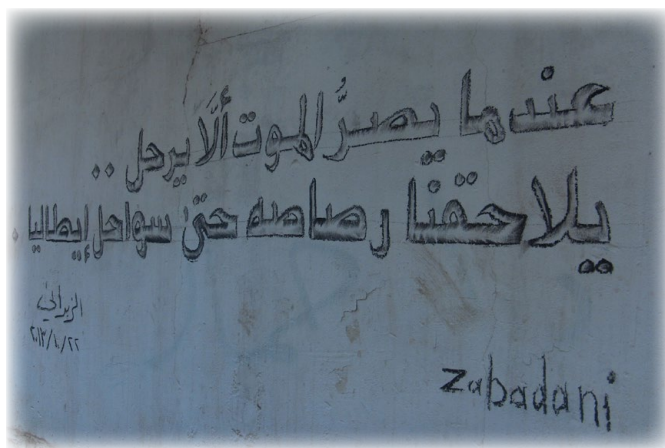 عندما يصرُّ الموت ألَّا يرحل ..
يلاحقنا رصاصه حتىٰ سواحل إيطاليا .
الزبداني
٢٠١٣/١٠/٢٢
zabadani